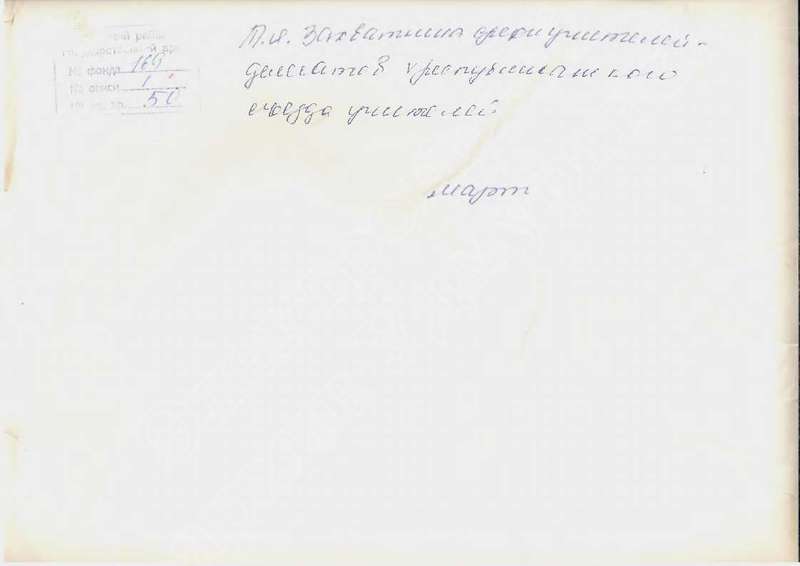 государственный
№ фонда 169
№ описи 1
№ ед. хр. 50
Т.Я. Захваткина среди учителей-
делегатов республиканского
съезда учителей
март